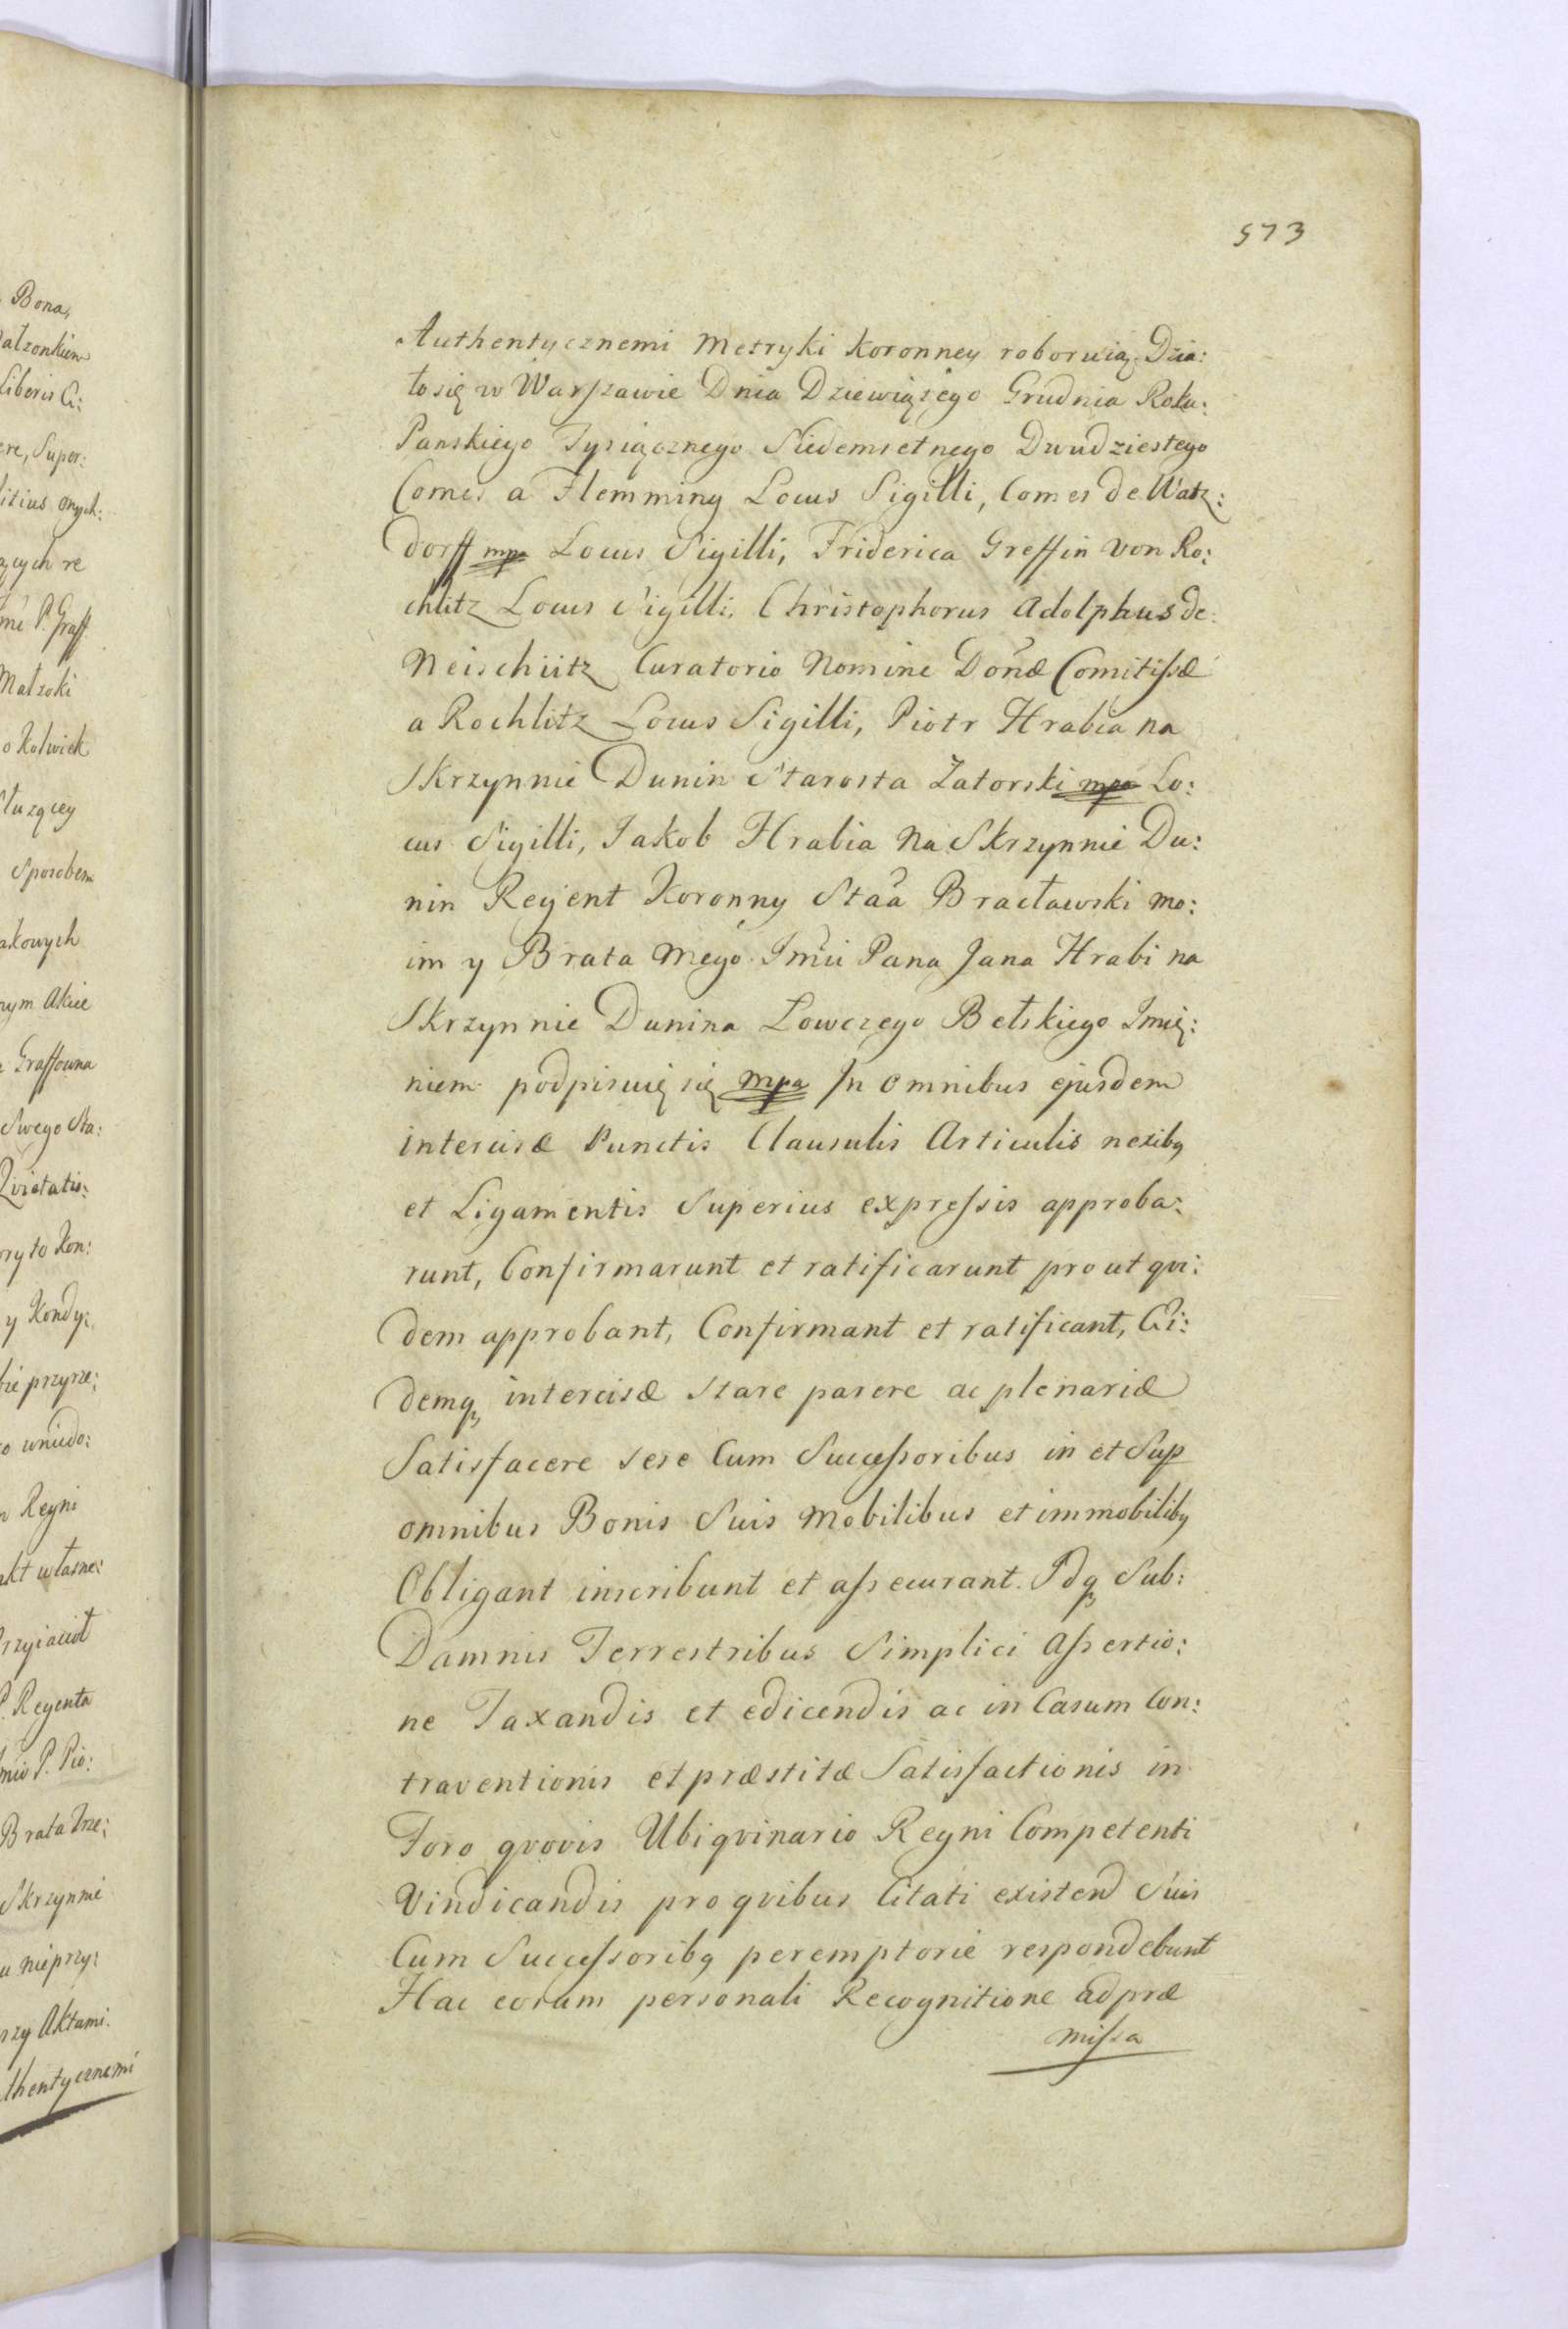 573
Authentycznemi Metryki Koronney roboruią. Dzia:
ło się w Warszawie Dnia Dziewiątego Grudnia Roku:
Panskiego Tysiącznego Siedemsetnego Dwudziestego
Comes a Flemming Locus Sigilli, Comes de Watz:
dorff mpa Locus Sigilli, Friderica Greffin von Ro:
chlitz Locus Sigilli, Christophorus Adolphus de:
Neischütz Curatorio Nomine Donæ Comitissæ
a Rochlitz Locus Sigilli, Piotr Hrabia na
Skrzynnie Dunin Starosta Zatorski mpa Lo:
cus Sigilli, Jakob Hrabia na Skrzynnie Du:
nin Regent Koronny Staa Bracławski mo:
im y Brata mego Jmci Pana Jana Hrabi na
Skrzynnie Dunina Łowczego Bełskiego Imię:
niem podpisuię się mpa In omnibus ejusdem
intercisæ Punctis Clausulis Articulis nexibq
et Ligamentis Superius expressis approba:
runt, Confirmarunt et ratificarunt prout qvi:
dem approbant, Confirmant et ratificant, Ei:
demq intercisæ stare parere ac plenariæ
Satisfacere sese Cum Successoribus in et Sup
omnibus Bonis Suis Mobilibus et immobilibq
Obligant inscribunt et assecurant. Idq Sub:
Damnis Terrestribus Simplici Assertio:
ne Taxandis et edicendis ac in Casum Con:
traventionis et præstitæ Satisfactionis in
Foro qvovis Ubiqvinario Regni Competenti
Vindicandis pro qvibus Citati existend Suis
Cum Successoribq peremptorie respondebunt
Hac eorum personali Recognitione ad præ
missa
Bona,
ałzonkiem
Liberis
ere, Super:
onych:
ących re
P. Graff
Małzoki
o Kolwiek
służącey
Sposobem
akowych
nym Akcie
Graffowna
Swego Sta:
Qvietatis:
oryto Kon:
y Kondy:
bie przyrze:
o wniedo:
Regni
akt własne:
Przyiaciół
P. Regenta
P. Pio:
Brata
Skrzynnie
u nieprzy:
rzy Aktami.
thentycznemi